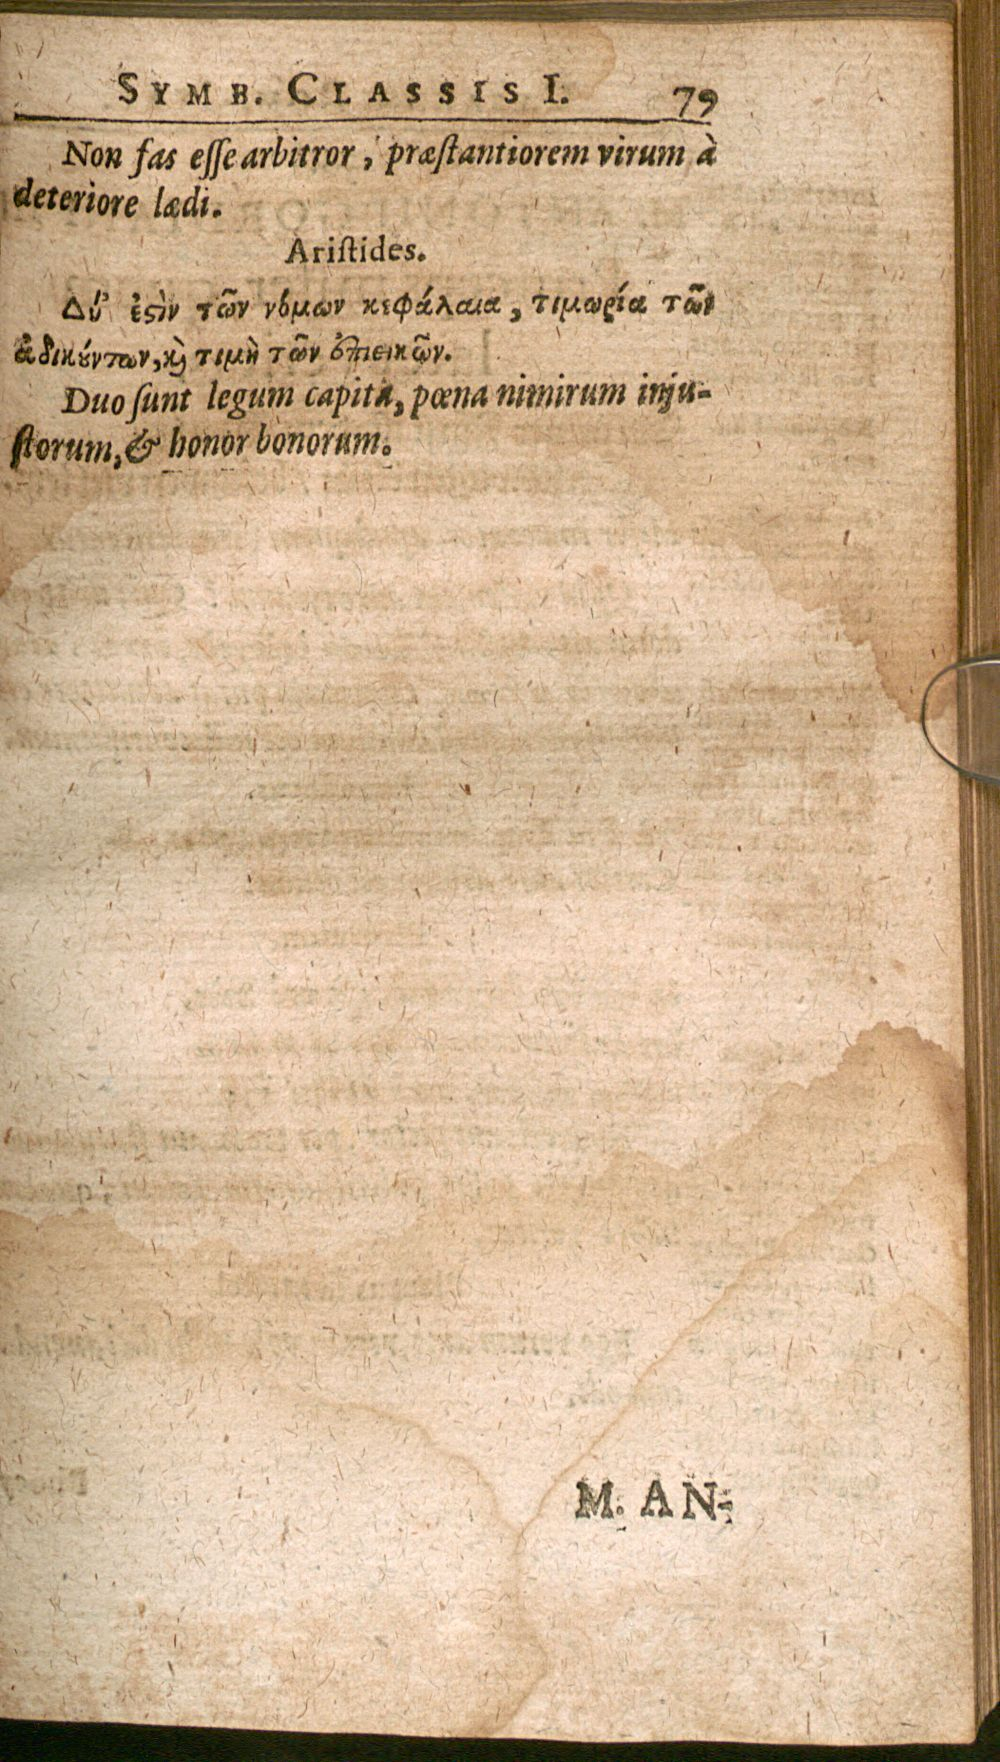 SYMB. CLASSIS I. 79
Non fas eſſe arbitror, præſtantiorem virum à
deteriore lædi.
Ariſtides.
Δύ' ἐςὶν τῶν νόμων κεφάλαια, τιμωρία τῶν
ἀδικούντων, καὶ τιμὴ τῶν ἐπιεικῶν.
Duo ſunt legum capita, pœna nimirum inju-
ſtorum, & honor bonorum.
M. AN-